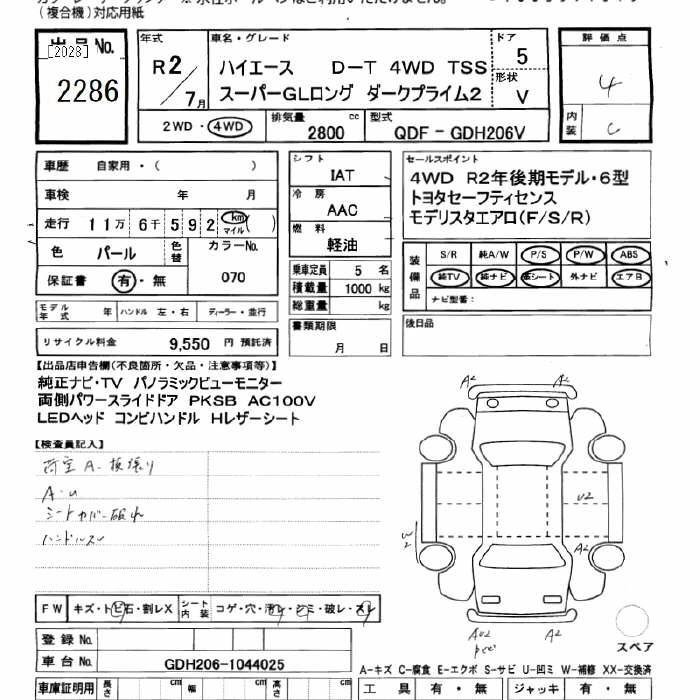 (複合機)対応用紙
出品No.
[2028]
2286
年式
R2/7月
車名・グレード
ハイエース D-T 4WD TSS
スーパーGLロング ダークプライム2
ドア
5
形状
V
評価点
4
内装
C
2WD・4WD
排気量
2800 cc
型式
QDF-GDH206V
車歴 自家用・( )
車検 年 月
走行 11万6千592 km マイル( )
色 パール 色替 カラーNo.
保証書 有・無 070
モデル年式 年 ハンドル 左・右 ディーラー・並行
リサイクル料金 9,550 円 預託済
シフト
IAT
冷房
AAC
燃料
軽油
乗車定員 5 名
積載量 1000 kg
総重量 kg
書類期限
月 日
セールスポイント
4WD R2年後期モデル・6型
トヨタセーフティセンス
モデリスタエアロ(F/S/R)
装備品
S/R 純A/W P/S P/W ABS
純TV 純ナビ 革シート 外ナビ エアB
ナビ型番:
後日品
【出品店申告欄(不良箇所・欠品・注意事項等)】
純正ナビ・TV パノラミックビューモニター
両側パワースライドドア PKSB AC100V
LEDヘッド コンビハンドル Hレザーシート
【検査員記入】
荷室A・板張り
A・U
シートカバー破れ
ハンドルスレ
A2 A2
U2
W2
A2
AU2 A2
FW キズ・トビ石・割レX シート内装 コゲ・穴・汚レ・シミ・破レ・スレ
登録No.
車台No. GDH206-1044025
スペア
A-キズ C-腐食 E-エクボ S-サビ U-凹ミ W-補修 XX-交換済
車庫証明用 長さ cm 幅 cm 高さ cm
工具 有・無 ジャッキ 有・無